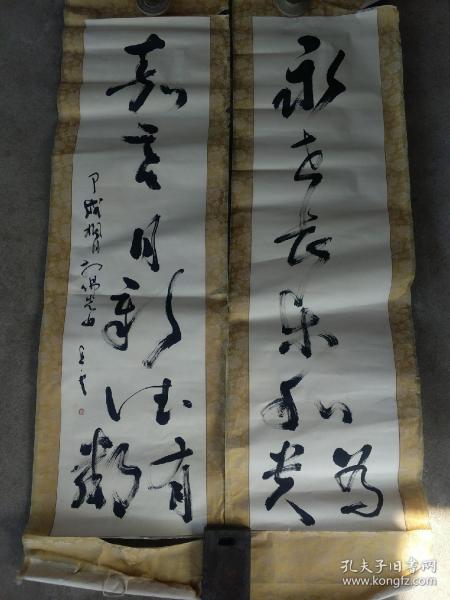 永世長樂和為貴
嘉言日新德有鄰
甲戌桐月
孔夫子旧书网
www.kongfz.com